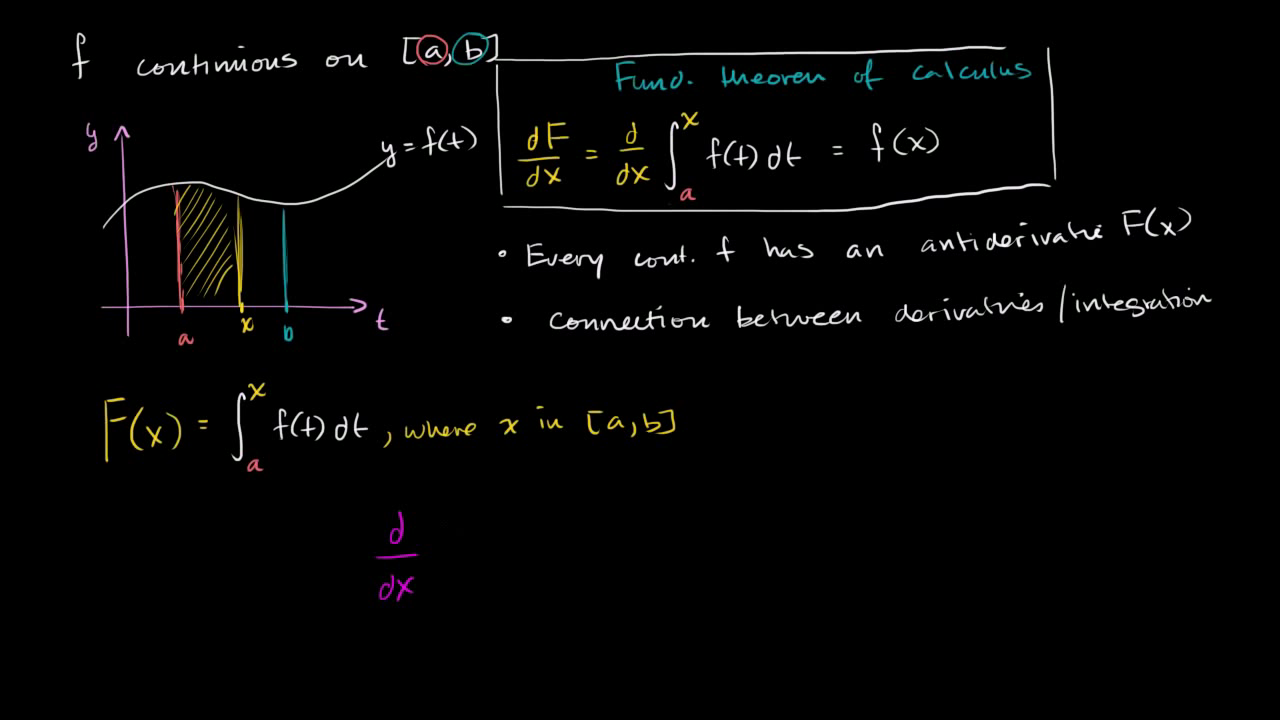 f continuous on [a, b]
Fund. theorem of calculus
dF/dx = d/dx ∫_a^x f(t) dt = f(x)
y
y = f(t)
a x b t
• Every cont. f has an antiderivative F(x)
• connection between derivatives/integration
F(x) = ∫_a^x f(t) dt, where x in [a,b]
d/dx